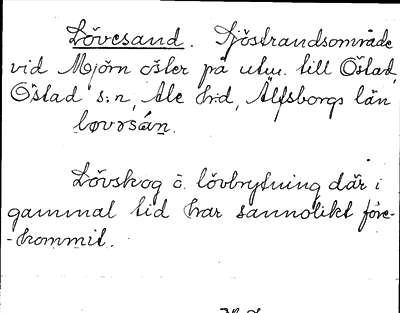 Lövesand. Sjöstrandsområde
vid Mjörn öster på utm. till Östad,
Östad s:n, Ale hd, Älfsborgs län
løvəsán.
Lövskog o. lövbrytning där i
gammal tid har sannolikt före-
-kommit.